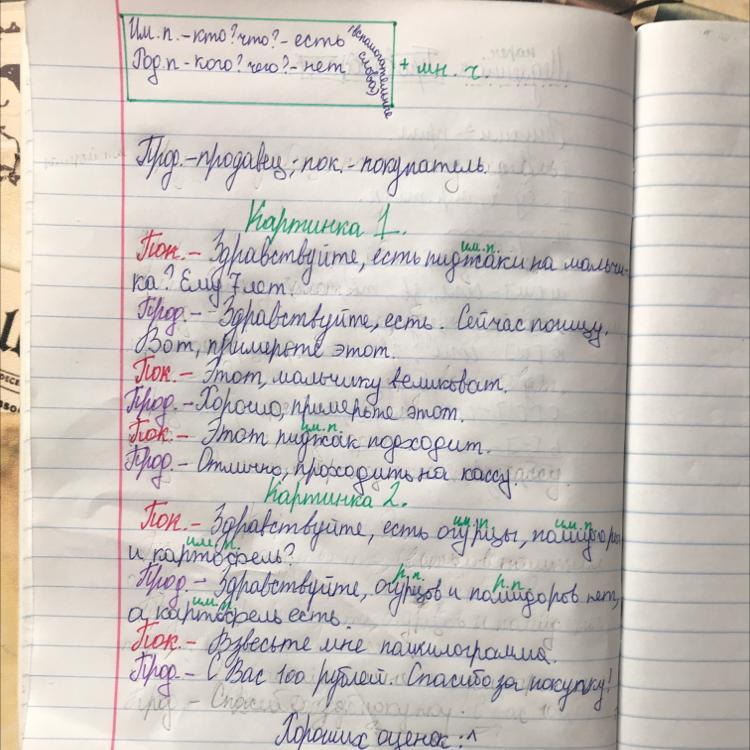 Им.п.-кто? что?- есть
Род.п - кого? чего?- нет
(вспомогательные слова)
+ мн. ч
Прод.-продавец; пок.- покупатель.
Картинка 1.
им.п.
Пок.- Здравствуйте, есть пиджаки на мальчи-
ка? Ему 7 лет.
Прод.- Здравствуйте, есть. Сейчас поищу.
Вот, примерьте этот.
Пок.- Этот, мальчику великоват.
Прод.-Хорошо, примерьте этот.
им.п.
Пок.- Этот пиджак подходит.
Прод.- Отлично, проходить на кассу.
Картинка 2.
им.п. им.п.
Пок.- Здравствуйте, есть огурцы, помидоры
им.п.
и картофель?
р.п. р.п.
Прод.- Здравствуйте, огурцов и помидоров нет,
им.п.
а картофель есть.
Пок.- Взвесьте мне полкилограмма.
Прод.- С Вас 100 рублей. Спасибо за покупку!
Хороших оценок :^